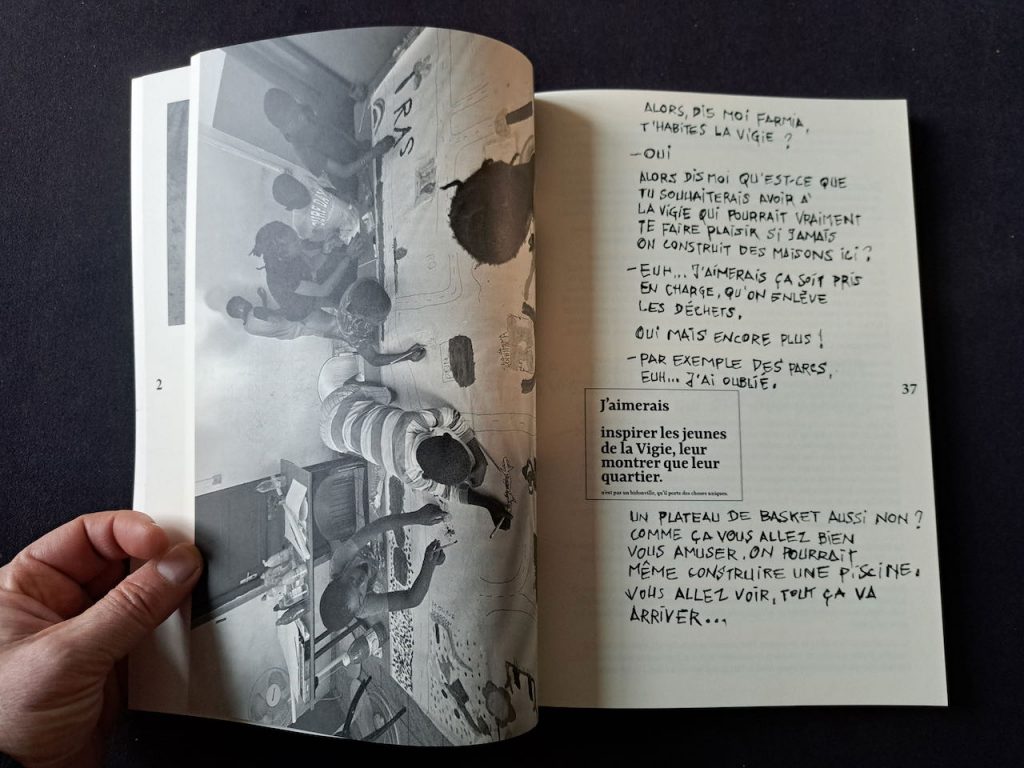 2
TRAS
ALORS, DIS MOI FARMIA,
T'HABITES LA VIGIE ?
– OUI
ALORS DIS MOI QU'EST-CE QUE
TU SOUHAITERAIS AVOIR A'
LA VIGIE QUI POURRAIT VRAIMENT
TE FAIRE PLAISIR SI JAMAIS
ON CONSTRUIT DES MAISONS ICI ?
– EUH... J'AIMERAIS ÇA SOIT PRIS
EN CHARGE, QU'ON ENLÈVE
LES DÉCHETS,
OUI MAIS ENCORE PLUS !
– PAR EXEMPLE DES PARCS,
EUH... J'AI OUBLIÉ.
37
J'aimerais
inspirer les jeunes
de la Vigie, leur
montrer que leur
quartier.
n'est pas un bidonville, qu'il porte des choses uniques.
UN PLATEAU DE BASKET AUSSI NON ?
COMME ÇA VOUS ALLEZ BIEN
VOUS AMUSER. ON POURRAIT
MÊME CONSTRUIRE UNE PISCINE.
VOUS ALLEZ VOIR, TOUT ÇA VA
ARRIVER...